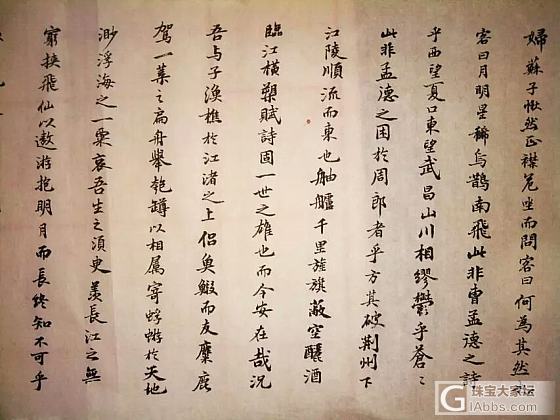 婦蘇子愀然正襟危坐而問客曰何為其然也
客曰月明星稀烏鵲南飛此非曹孟德之詩
乎西望夏口東望武昌山川相繆鬱乎蒼〻
此非孟德之困於周郎者乎方其破荊州下
江陵順流而東也舳艫千里旌旗蔽空釃酒
臨江橫槊賦詩固一世之雄也而今安在哉況
吾与子漁樵於江渚之上侶魚鰕而友麋鹿
駕一葉之扁舟舉匏罇以相属寄蜉蝣於天地
渺浮海之一粟哀吾生之須臾羨長江之無
窮挾飛仙以遨游抱明月而長終知不可乎
珠宝大家坛
GIAbbs.com